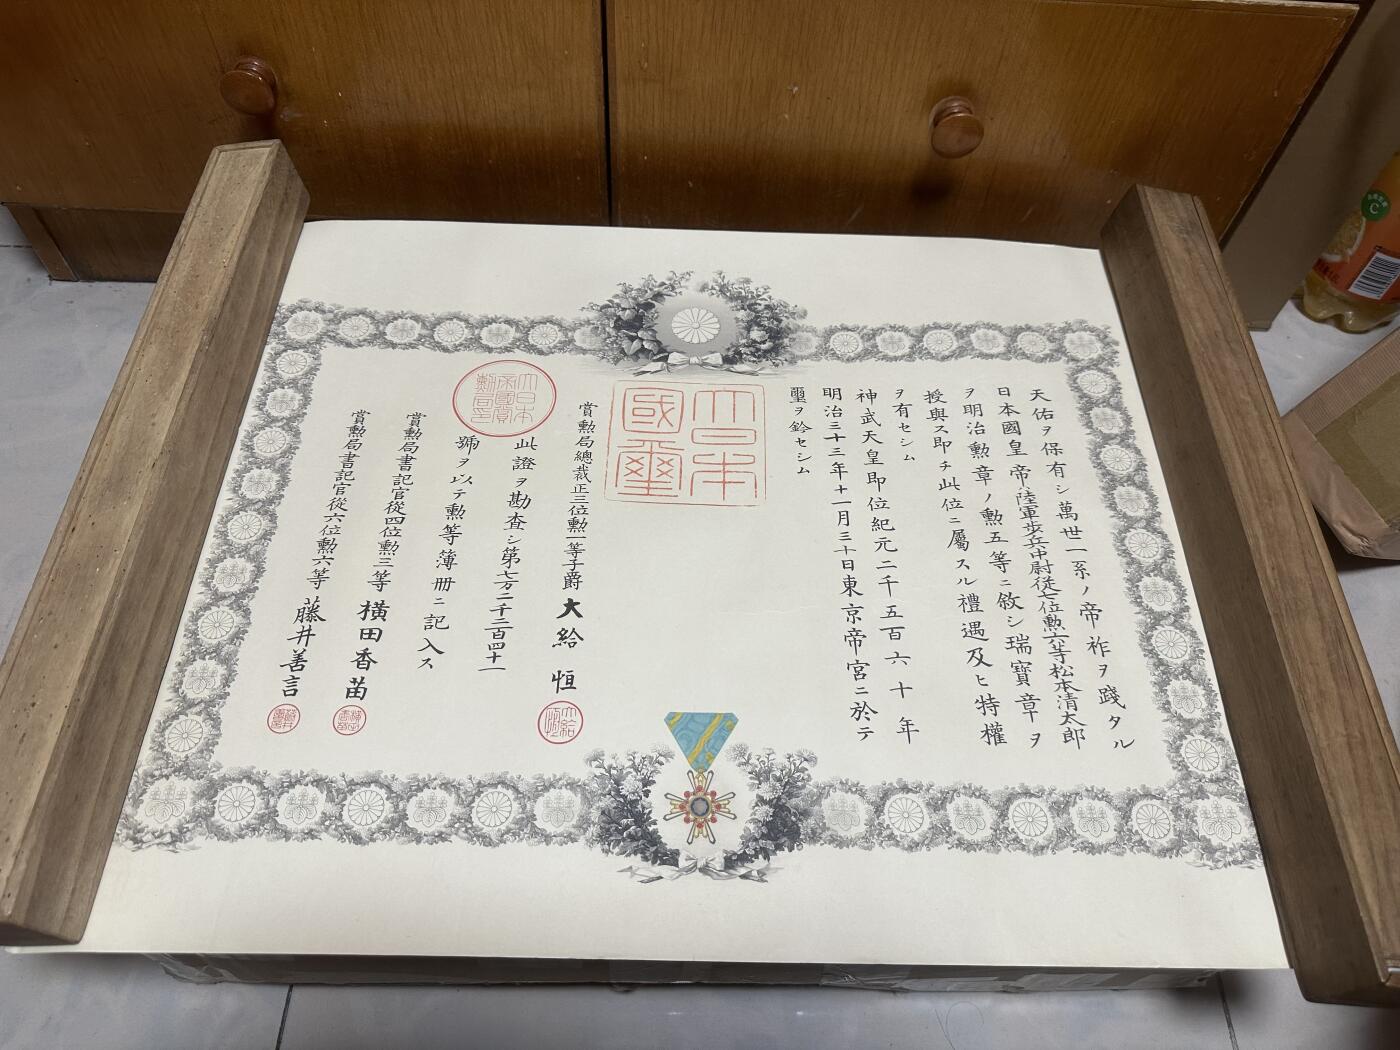 天佑ヲ保有シ萬世一系ノ帝祚ヲ踐タル
日本國皇帝陸軍歩兵中尉從七位勲六等松本清太郎
ヲ明治勲章ノ勲五等ニ敘シ瑞寶章ヲ
授與ス即チ此位ニ屬スル禮遇及ヒ特權
ヲ有セシム
神武天皇即位紀元二千五百六十年
明治三十三年十一月三十日東京帝宮ニ於テ
璽ヲ鈐セシム
大日本
國璽
賞勲局總裁正三位勲一等子爵大給恒
大給恒
大日本
帝國賞
勲局印
此證ヲ勘査シ第七万二千二百四十一
號ヲ以テ勲等簿冊ニ記入ス
賞勲局書記官從四位勲三等横田香苗
横田香苗
賞勲局書記官從六位勲六等藤井善言